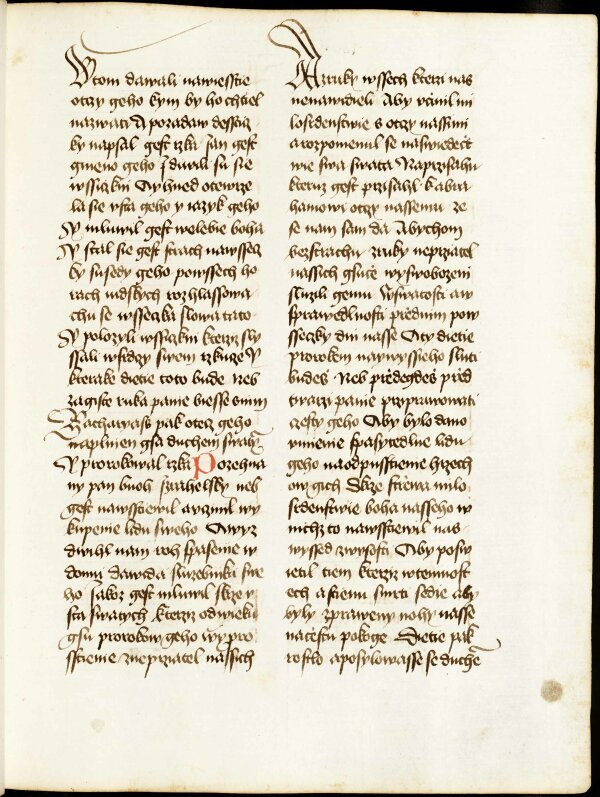 Vtom dawali nawiesstie
otczy geho kym by ho chtiel
nazwati A pozadaw dessticz
ky napsal gest rzka Jan gest
gmeno geho J diwili su sie
wssiczkni Ay hned otewrze
la sie vsta geho y iazyk geho
Y mluwil gest welebie boha
Y stal sie gest strach nawssecz
ky susedy geho powssech ho
rach iudskych rozhlassowa
chu se wssecka slowa tato
Y polozyli wssiczkni kterzi sly
ssali wsrdczy swem rzkuze Y
kterake dietie toto bude neb
zagiste ruka panie biesse snim
Zacharyass pak otecz geho
naplnien gsa duchem swatym
Y prorokowal rzka Pozehna
ny pan buoh Jzrahelsky neb
gest nawsstiewil avczinil wy
kupenie lidu sweho Awyz
dwihl nam roh spasenie w
domu dawida sluzebnika swe
ho Jakoz gest mluwil skrze v
sta swatych kterzi odwieku
gsu prorokow geho Wypro
sstienie znepratel nassich
Azruky wssech kterzi nas
nenawidieli Aby vcinil mi
losrdenstwie s otczy nassimi
arozpomenul se naswiedect
wie swa swata Naprzisahu
kteruz gest przisahl kabra
hamowi otczy nassemu ze
se nam sam da Abychom
bezstrachu zruky neprziatel
nassich gsuce wyswobozeni
sluzili gemu Wswatosti aw
sprawedlnosti prednim pow
sseczky dni nasse Aty dietie
prorokem naywyssieho sluti
budes Neb predegdes pred
twarzi panie przyprawowati
czesty geho Aby bylo dano
vmienie spasytedlne lidu
geho naodpusstienie hrziech
ow gich Skrze strziewa milo
srdenstwie boha nasseho w
nichz to nawsstiewil nas
wyssed zwysosti Aby poswi
etil tiem kterziz wtemnost
ech astienu smrti sedie aby
byly zprawenny nohy nasse
nacestu pokoge Dietie pak
rostlo aposylowasse se duche